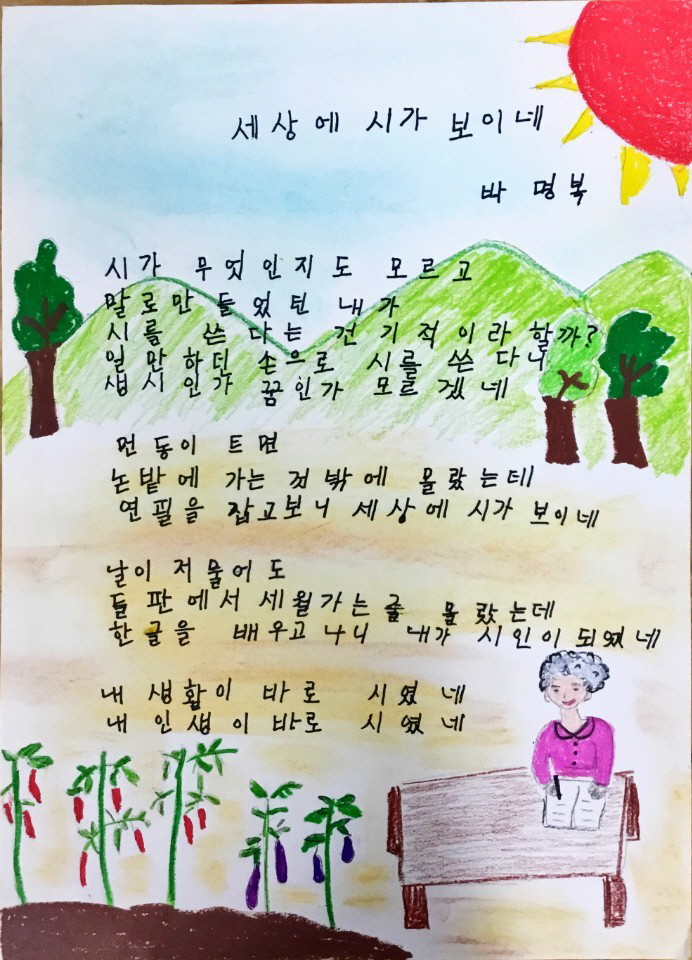 세상에 시가 보이네
바 명북
시가 무엇인지도 모르고
말로만 들었턴 내가
시를 쓴다는 건 기적이라 할까?
일만하던 손으로 시를 쓴다니
생시인가 꿈인가 모르겠네
먼동이 트면
논밭에 가는 것밖에 몰랐는데
연필을 잡고보니 세상에 시가 보이네
날이 저물어도
들판에서 세월가는줄 몰랐는데
한글을 배우고나니 내가 시인이 되였네
내 생활이 바로 시였네
내 인생이 바로 시였네